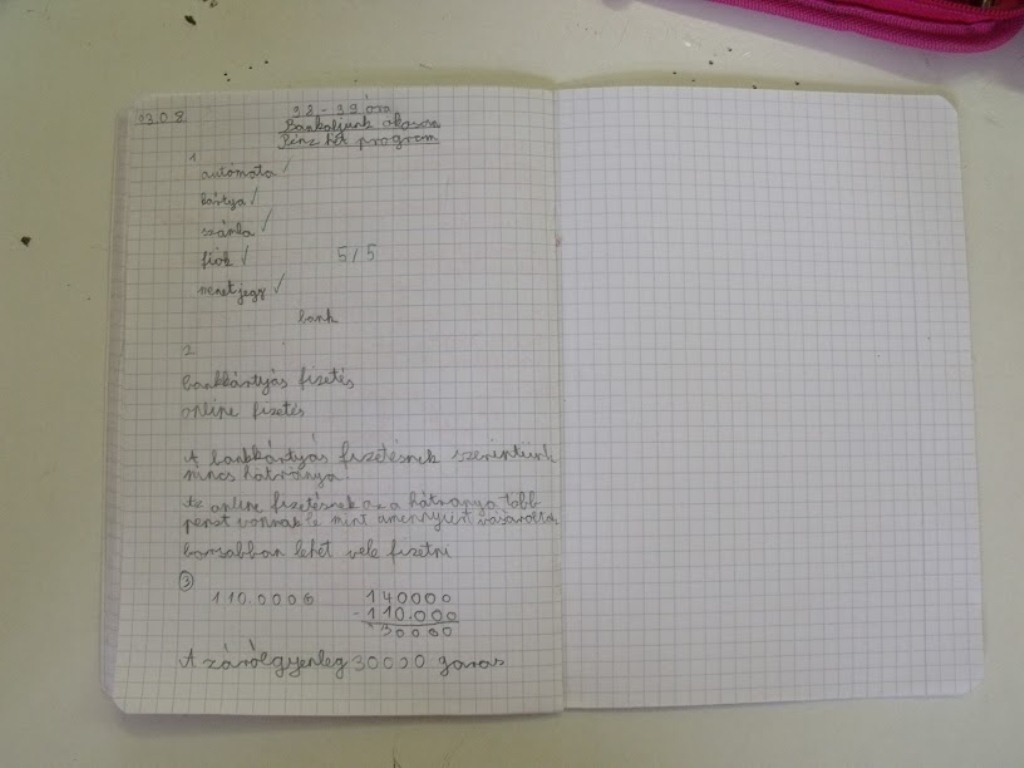 03.08
98-99 óra
Bankoljunk okosan
Pénz hét program
1
autómata ✓
kártya ✓
számla ✓
fiók ✓
5/5
menetjegy ✓
bank
2
bankkártyás fizetés
online fizetés
A bankkártyás fizetésnek szerintünk
nincs hátránya.
Az online fizetésnek az a hátránya több
pénzt vonnak le mint amennyiért
lehet vele fizetni
③
110.000G 140000
-110.000
30000
A záróegyenleg 30000 garas